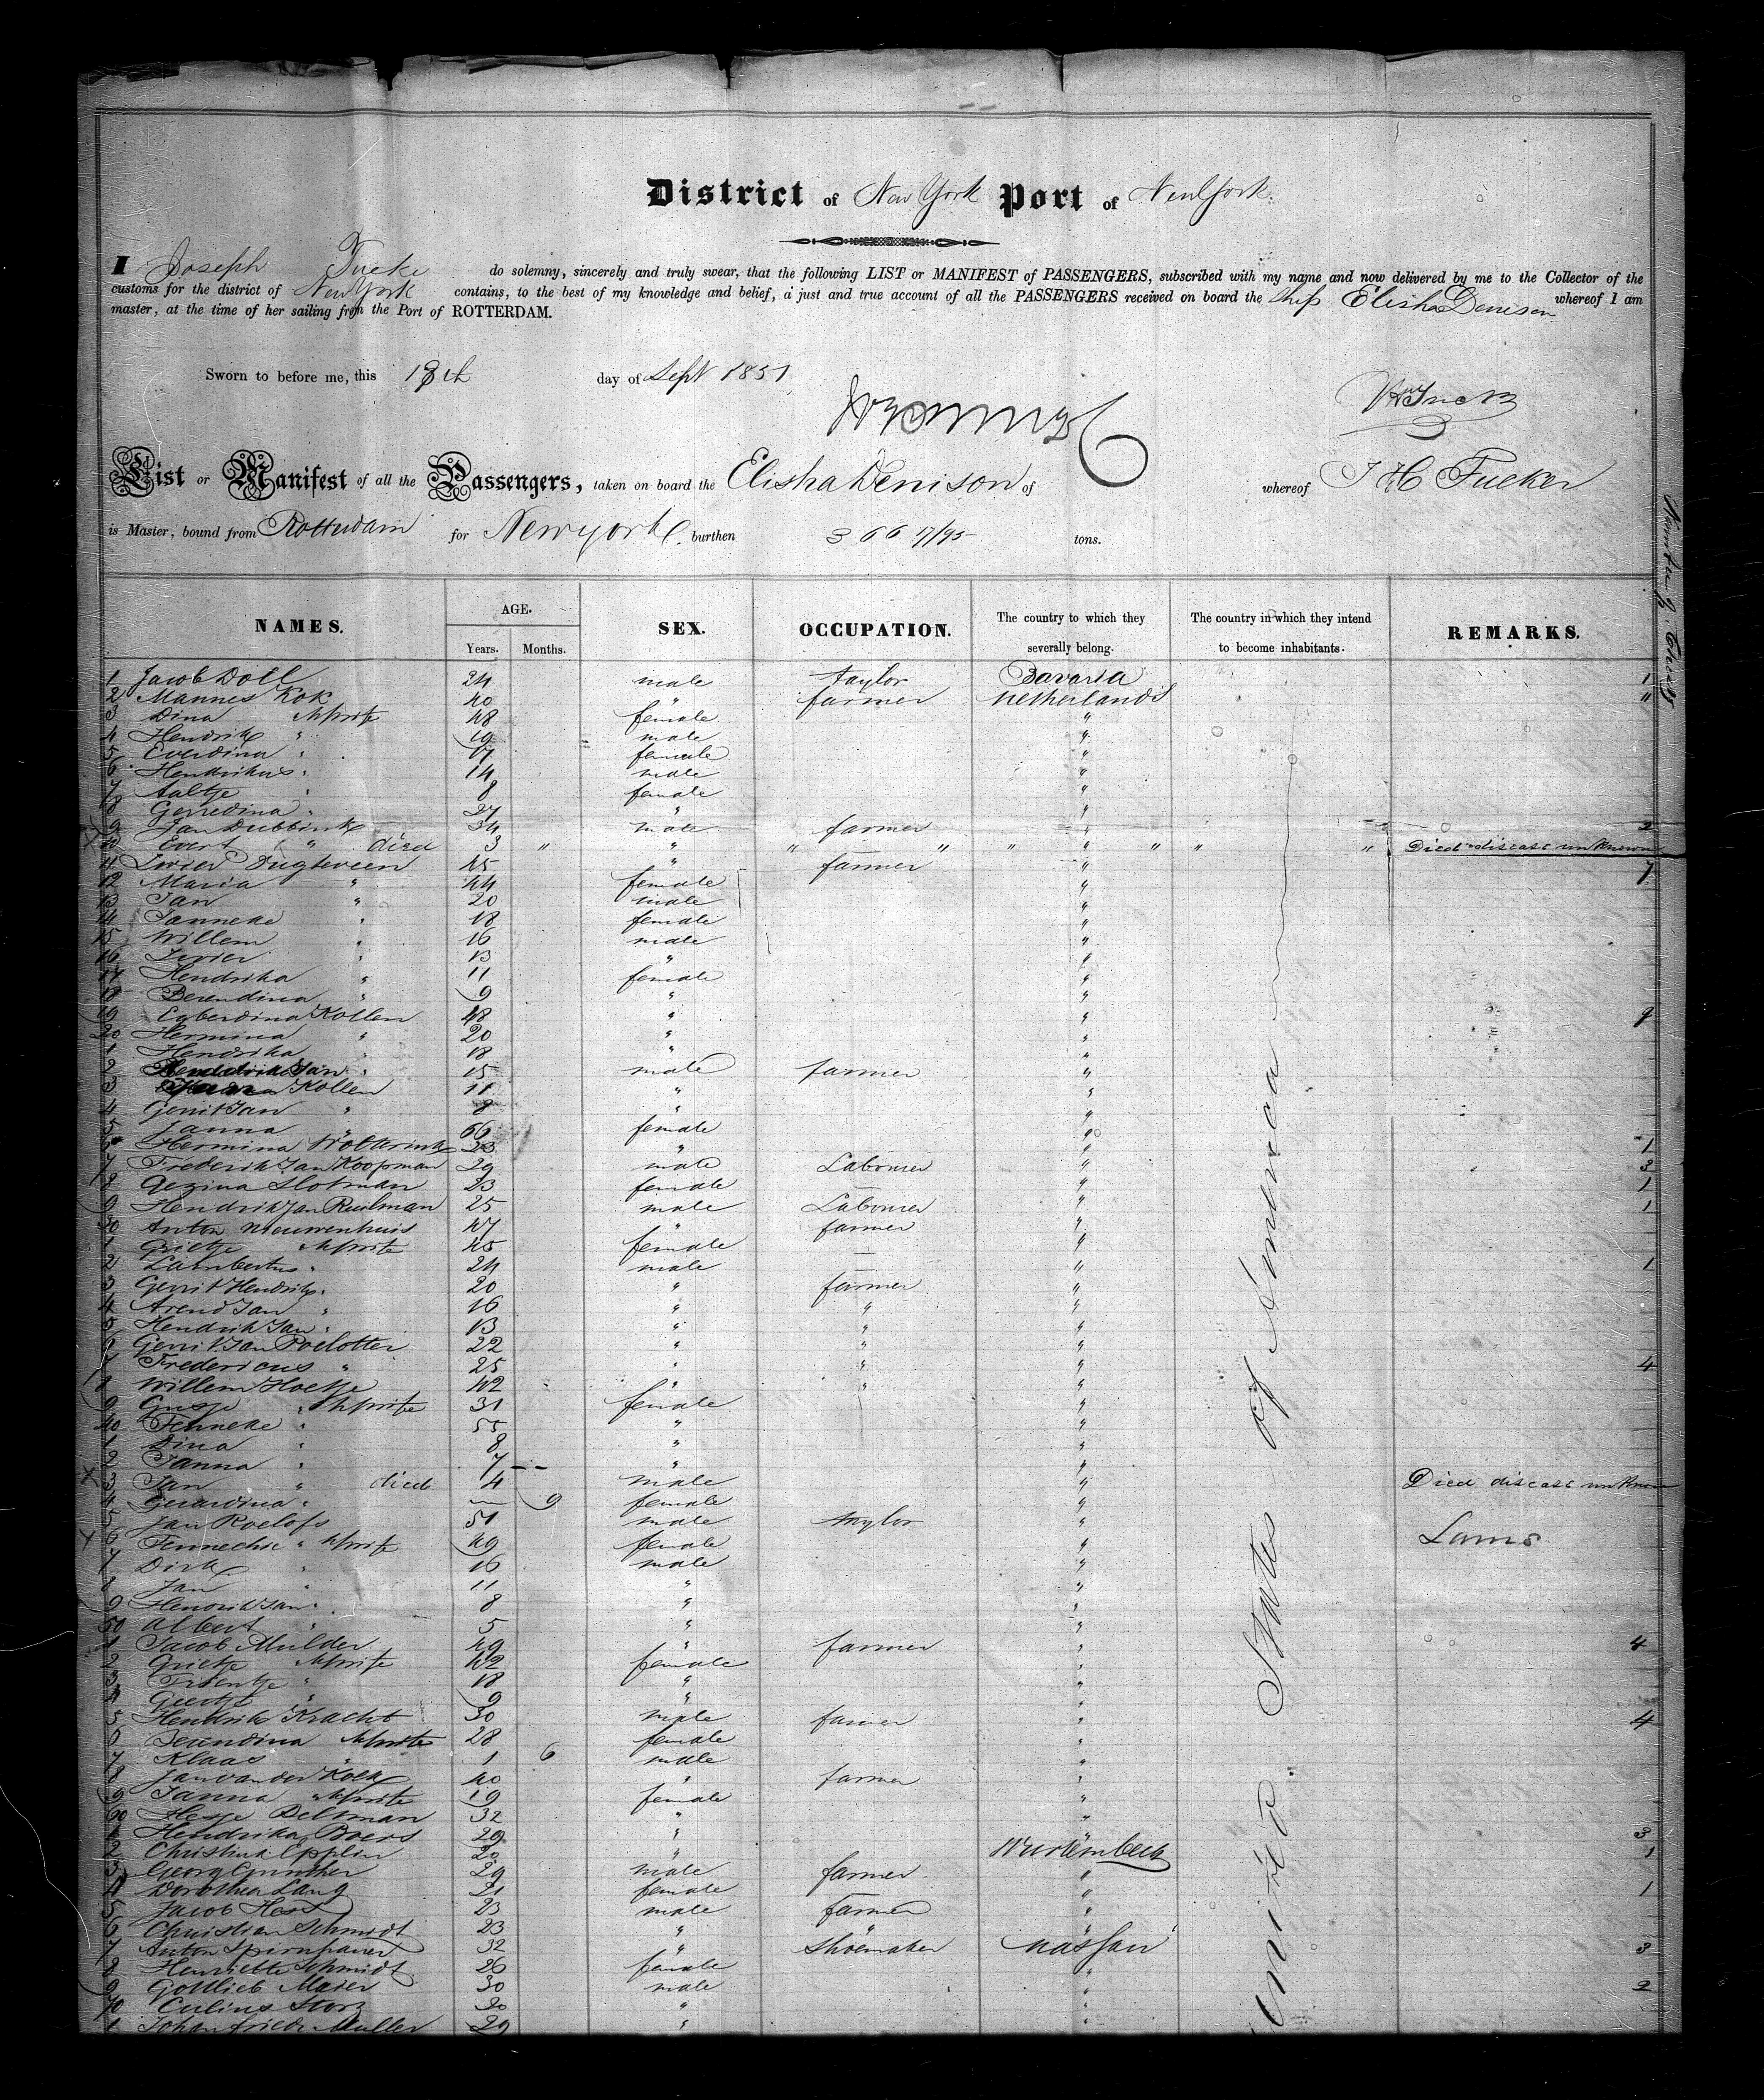 District of New York Port of New York.
I Joseph Tucker do solemny, sincerely and truly swear, that the following LIST or MANIFEST of PASSENGERS, subscribed with my name and now delivered by me to the Collector of the
customs for the district of New York contains, to the best of my knowledge and belief, a just and true account of all the PASSENGERS received on board the Ship Elisha Denison whereof I am
master, at the time of her sailing from the Port of ROTTERDAM.
Sworn to before me, this day of Sept 1851
List or Manifest of all the Passengers, taken on board the Elisha Denison of whereof J H Tucker
is Master, bound from Rotterdam for New york. burthen 366 17/95 tons.
NAMES. AGE. SEX. OCCUPATION. The country to which they severally belong. The country in which they intend to become inhabitants. REMARKS.
Years. Months.
United States of America
1 Jacob Doll 24 male taylor Bavaria 1
2 Mannes Kok 40 " farmer Netherlands "
3 Dina 48 female "
4 Hendrik " 19 male "
5 Everdina " 17 female "
6 Hendrikus " 14 male "
7 Aaltje " 8 female "
8 Gerredina " 27 " "
9 Jan Dubbink 34 male farmer " 2
10 Evert " died 3 " " " " " " " " " Died disease unknown
45 " farmer " 7
12 Maria " 44 female "
13 Jan " 20 male "
14 Janneke " 18 female "
15 Willem " 16 male "
16 " 13 " "
17 Hendrika " 11 female "
18 Berendina " 9 " "
19 Egberdina Kollen 48 " " 9
20 Hermina " 20 " "
1 Hendrika " 18 " "
2 Jan " 15 male farmer "
3 Kollen 11 " "
4 Gerrit Jan " 8 " "
5 Janna " 66 female "
6 Hermina Wolterink 23 " " 1
7 Frederik Jan Koopman 29 male Labourer " 3
8 Gezina Slotman 23 female " 1
9 Hendrik Jan 25 male Labourer " 1
30 Anton Nieuwenhuis 47 " farmer "
1 Grietje 45 female "
2 Lambertus " 24 male " 1
3 Gerrit Hendrik " 20 " farmer "
4 Arend Jan " 16 " " "
5 Hendrik Jan " 13 " " "
6 Gerrit Jan Poelotter 22 " " "
7 Fredericus " 25 " " " 4
8 Willem Hoetje 42 " " "
9 " 31 female "
40 Fenneke " 55 " "
1 Dina " 8 " "
2 Janna " 7 " "
3 Jan " died 4 male " Died disease unknown
4 Gerardina " 9 female "
5 Jan Roelofs 51 male taylor "
6 " 49 female "
7 Dirk " 16 male "
8 Jan " 11 " "
9 Hendrik Jan " 8 " "
50 Albert " 5 " "
1 Jacob Mulder 49 " farmer " 4
2 Grietje 42 female "
3 " 18 " "
4 Geertje " 9 " "
5 Hendrik Kracht 30 male farmer " 4
6 Berendina 28 female "
7 Klaas " 1 6 male "
8 Jan van der Kolk 40 " farmer "
9 Janna " 19 female "
60 32 " "
1 Hendrika Boers 29 " " 3
2 Christina Epplin 20 " Wurtemberg 1
3 Georg Gunther 29 male farmer "
4 Dorothea Lang 21 female " 1
5 Jacob Hess 23 male Farmer "
6 Christian Schmidt 23 " " "
7 Anton 32 " Shoemaker Nassau 3
8 Henriette Schmidt 26 female "
9 Gottlieb Maier 30 male " 2
70 Storz 20 " "
1 Johan Muller 29 " "